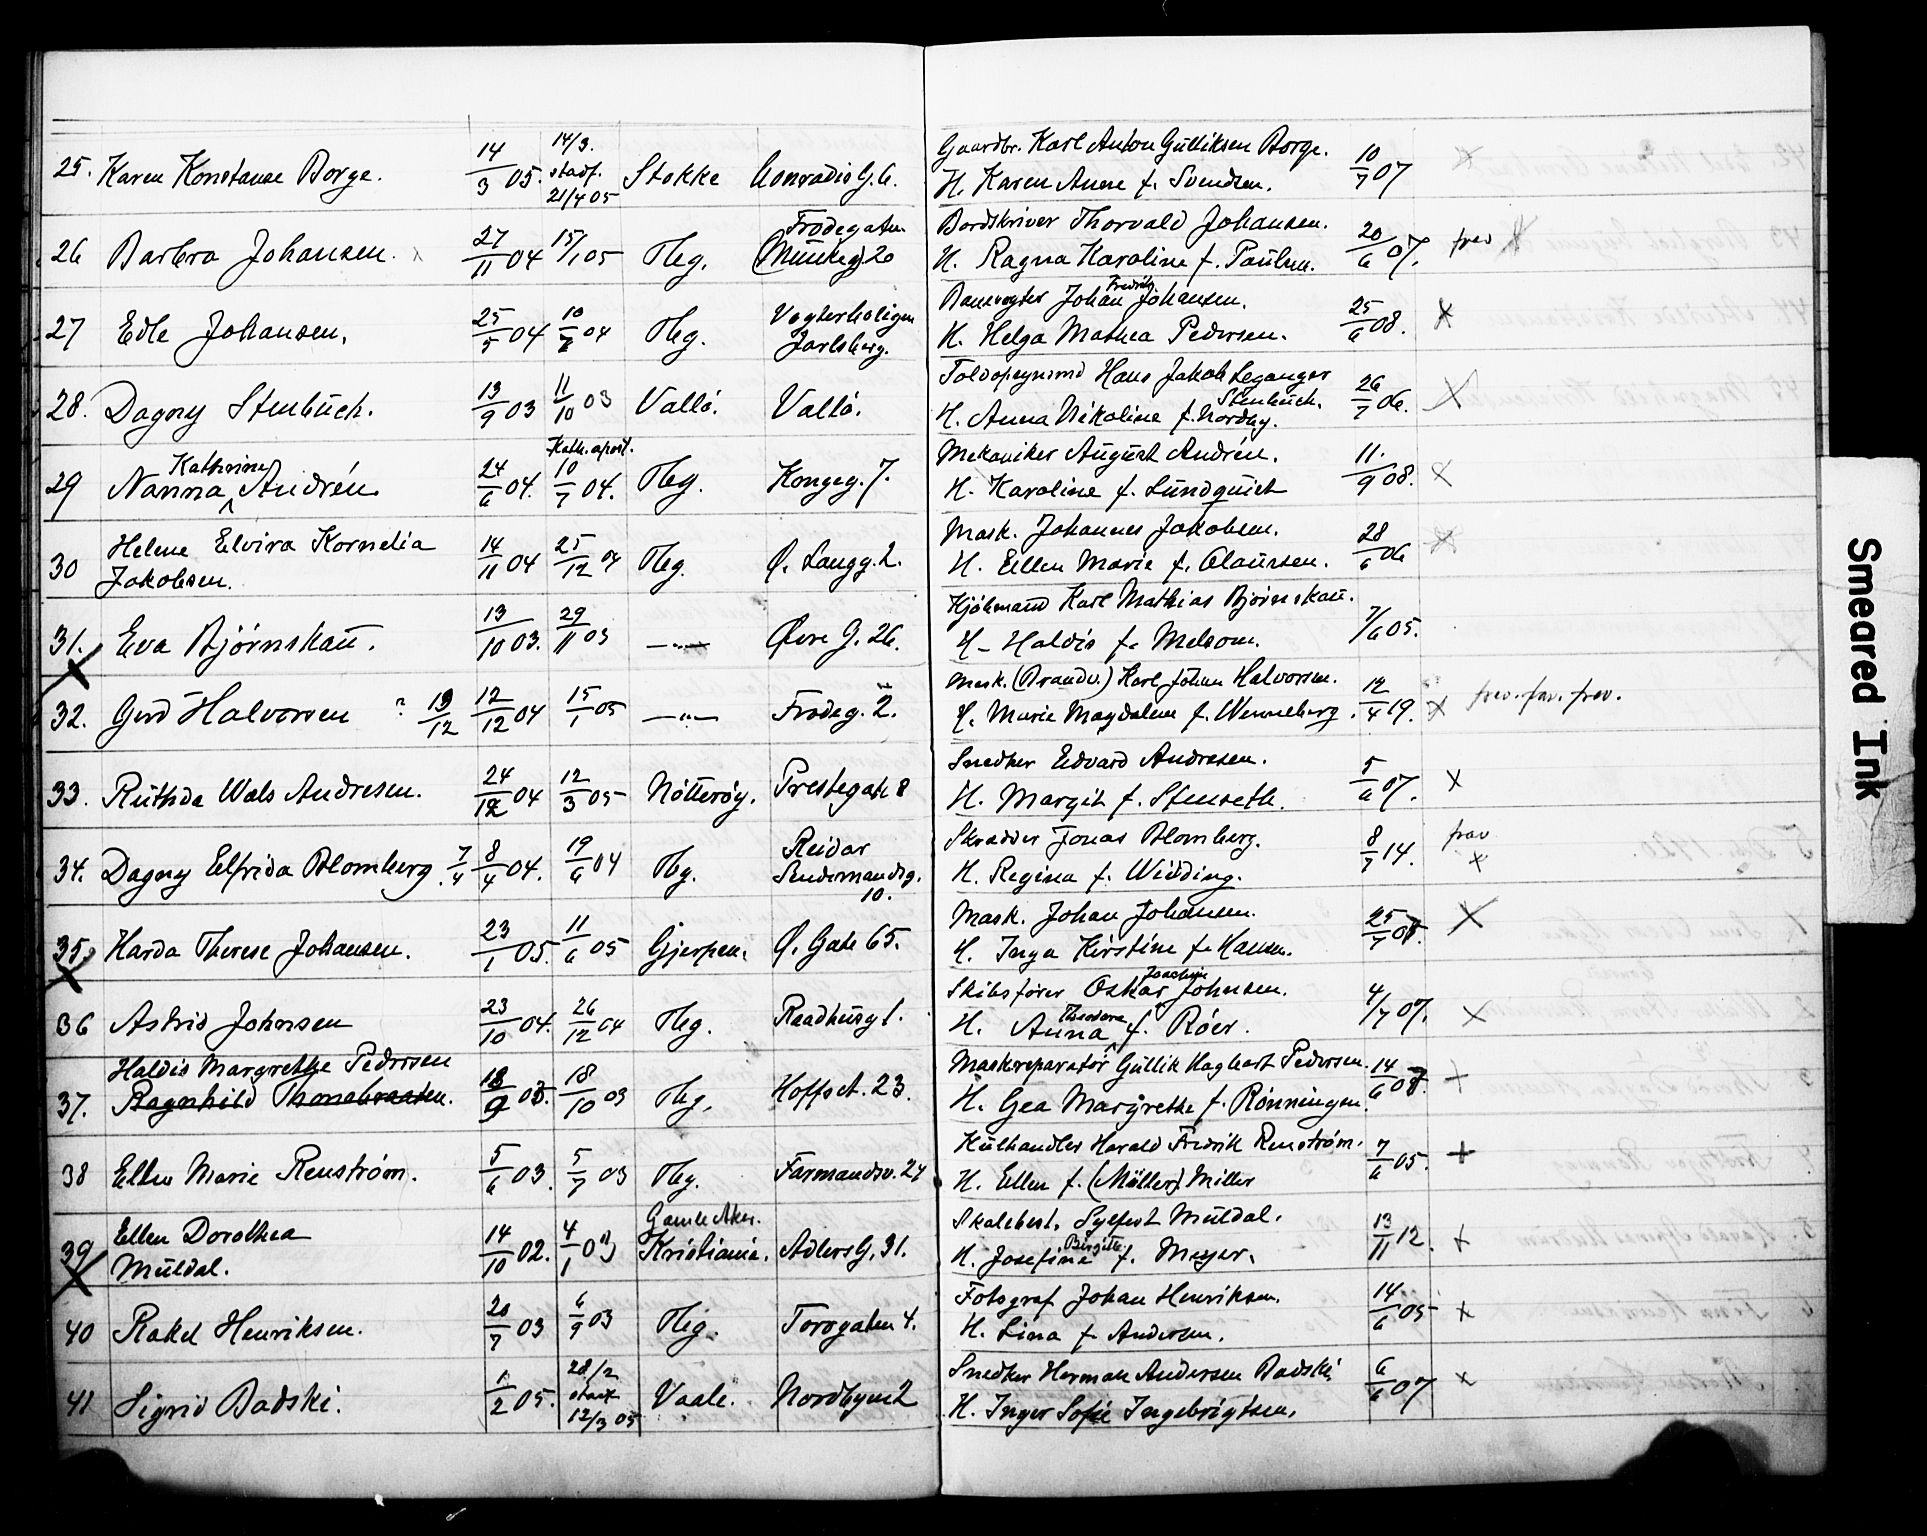 25. Karen Konstanse Borge. 14/3 05. 14/3. stadf. 21/4 05 Stokke Conradis G. 6. Gaardbr. Karl Anton Gulliksen Borge. 10/7 07
H. Karen Anne f. Svendsen.
26 Barbra Johansen. 27/11 04 15/1 05 Tbg. Frodegaten (Munkeg) 20 Bordskriver Thorvald Johansen. 20/6 07. frav
H. Ragna Karoline f. Paulsen.
27 Edle Johansen. 25/5 04 10/7 04 Tbg. Vogterboligen Jarlsberg. Banevogter Johan Fredrik Johansen. 25/6 08.
H. Helga Mathea Pedersen.
28. Dagny Stenbuch. 13/9 03 11/10 03 Vallö. Vallö. Toldopsynsmd Hans Jakob Leganger Stenbuch. 26/7 06.
H. Anna Nikoline f. Nordby.
29 Nanna Kathrine Andrén. 24/6 04. Kath. apost. 10/7 04. Tbg. Kongeg. 7. Mekaniker August Andrén. 11./9 08.
H. Karoline f. Lundquist
30 Helene Elvira Kornelia Jakobsen. 14/11 04 25/12 04 Tbg. Ø. Langg. 2. Mask. Johannes Jakobsen. 28/6 06
H. Ellen Marie f. Olaussen.
31. Eva Bjørnskau. 13/10 03. 29/11 03 —"— Øvre G. 26. Kjøbmand Karl Mathias Bjørnskau. 7/6 05.
H. Haldis f. Melsom.
32. Gerd Halvorsen ? 13/12 12/12 04 15/1 05 —"— Frodeg. 2. Mask. (Brandv.) Karl Johan Halvorsen. 12/4 19. frav. frav. frav.
H. Marie Magdalene f. Wenneberg.
33. Ruthda Wals Andresen. 24/12 04 12/3 05 Nötterøy. Prestegate 8 Snedker Edvard Andresen. 5/6 07.
H. Margit f. Stenseth.
34. Dagny Elfrida Blomberg. 7/4 8/4 04. 19/6 04 Tbg. Reidar Sendemandsg. 10. Skrædder Jonas Blomberg. 8/7 14. frav
H. Regina f. Widding.
35. Harda Therese Johansen. 23/1 05. 11/6 05 Gjerpen. Ø. Gate 65. Mask. Johan Johansen. 25/7 07.
H. Inga Kirstine f. Hansen.
36 Astrid Johnsen 23/10 04. 26/12 04 Tbg. Raadhusg 1. Skibsfører Oskar Joachim Johnsen. 4/7 07.
H. Anna Theodora f. Röer.
37. Haldis Margrethe Pedersen Ragnhild Thonebraaten. 18/9 03. 18/10 03 Tbg. Hoffsct. 23. Maskreparatør Gullik Hagbart Pedersen. 14/6 07
H. Gea Margrethe f. Rönningen.
38 Ellen Marie Renström. 5/6 03. 5/7 03 Tbg. Farmandsv. 24 Kulhandler Harald Fredrik Renström. 7/6 05.
H. Ellen f. (Möller) Miller
39 Ellen Dorothea Muldal. 14/10 02. 4/1 03 Gamle Aker. Kristiania. Adlers G. 31. Skolebest. Sylfest Muldal. 13/11 12.
H. Josefine Birgitte f. Meyer.
40 Rakel Henriksen. 20/7 03 6/9 03 Tbg. Torvgaten 4. Fotograf Johan Henriksen. 14/6 05
H. Lina f. Andersen.
41 Sigrid Badski. 1/2 05. 28/2 stadf 12/3 05 Vaale. Nordbyen 2 Snedker Herman Andersen Badski 6/6 07
H. Inger Sofie Ingebrigtsen.
Smeared Ink